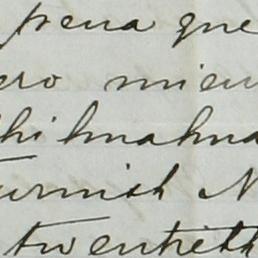 pena que
ero mien
hihuahua
urnish N
twentieth